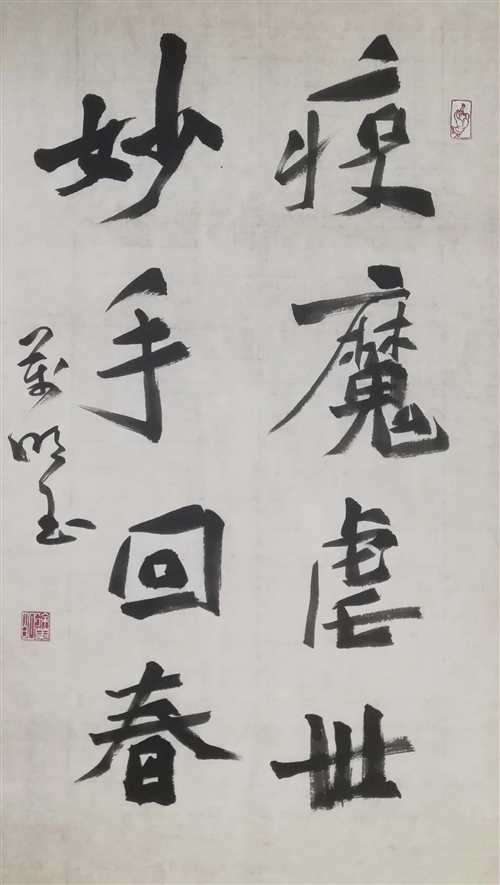 疫魔虐世
妙手回春
万明玉